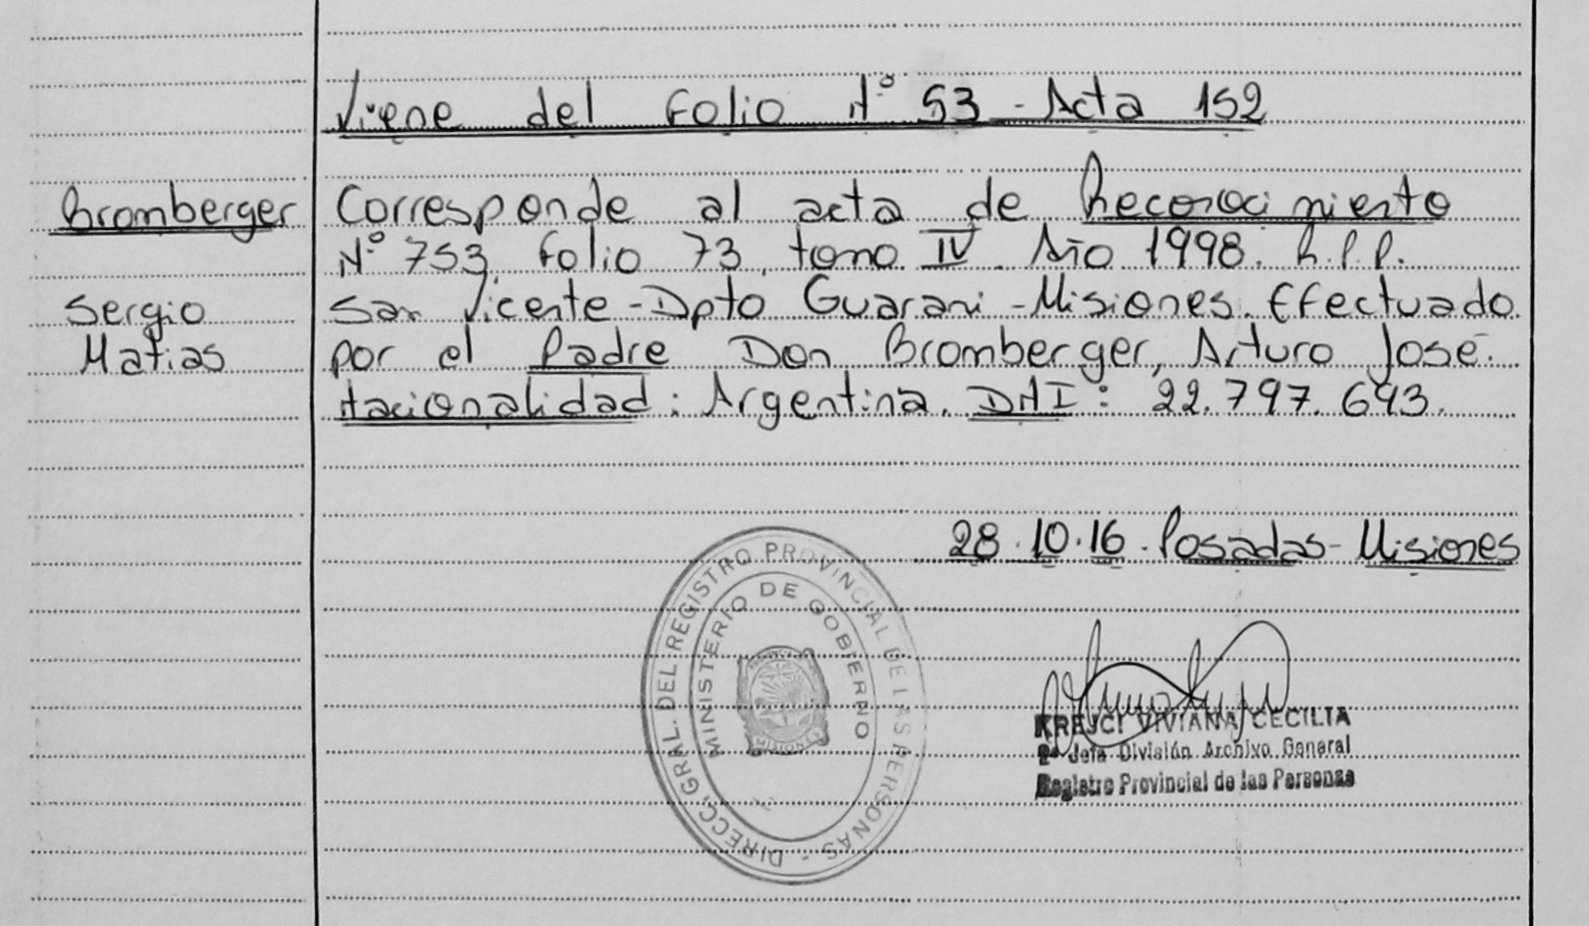 Viene del Folio N° 53 - Acta 152
Bromberger
Sergio
Matias
Corresponde al acta de Reconocimiento
N° 753, Folio 73, tomo IV. Año 1998. R.P.P.
San Vicente - Dpto Guarani - Misiones. Efectuado
por el Padre Don Bromberger, Arturo José.
Nacionalidad: Argentina. DNI: 22.797.693.
28.10.16. Posadas - Misiones
DIRECC. GRAL. DEL REGISTRO PROVINCIAL DE LAS PERSONAS
MINISTERIO DE GOBIERNO
MISIONES
KREJCI VIVIANA CECILIA
2° Jefa División Archivo General
Registro Provincial de las Personas